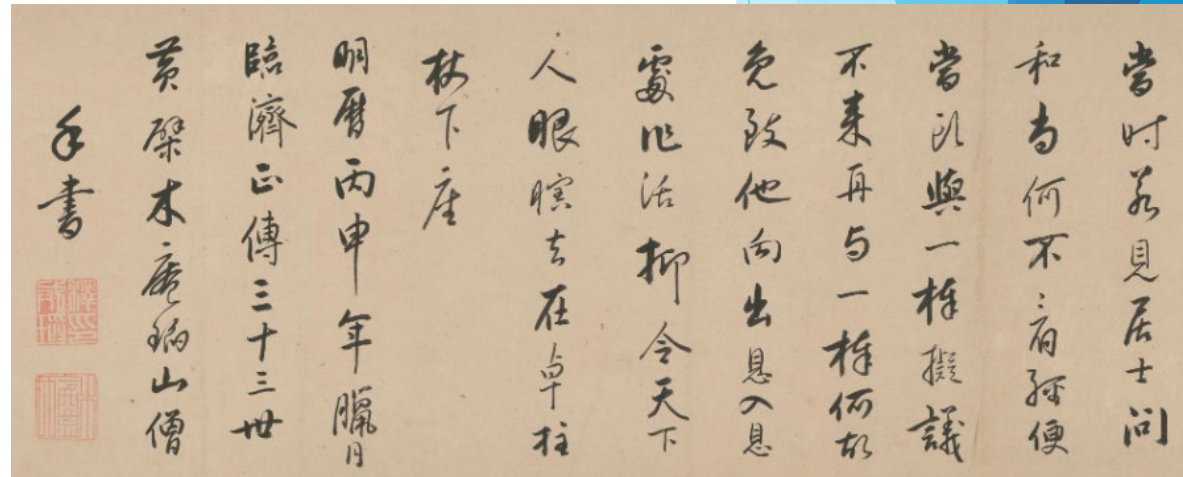 當时若見居士問
和尚何不看經便
當頭與一棒擬議
不来再与一棒何故
免致他向出息入息
處作活抑令天下
人眼瞎去在卓柱
杖下座
明暦丙申年臘月
臨濟正傳三十三世
黄檗木庵瑫山僧
手書